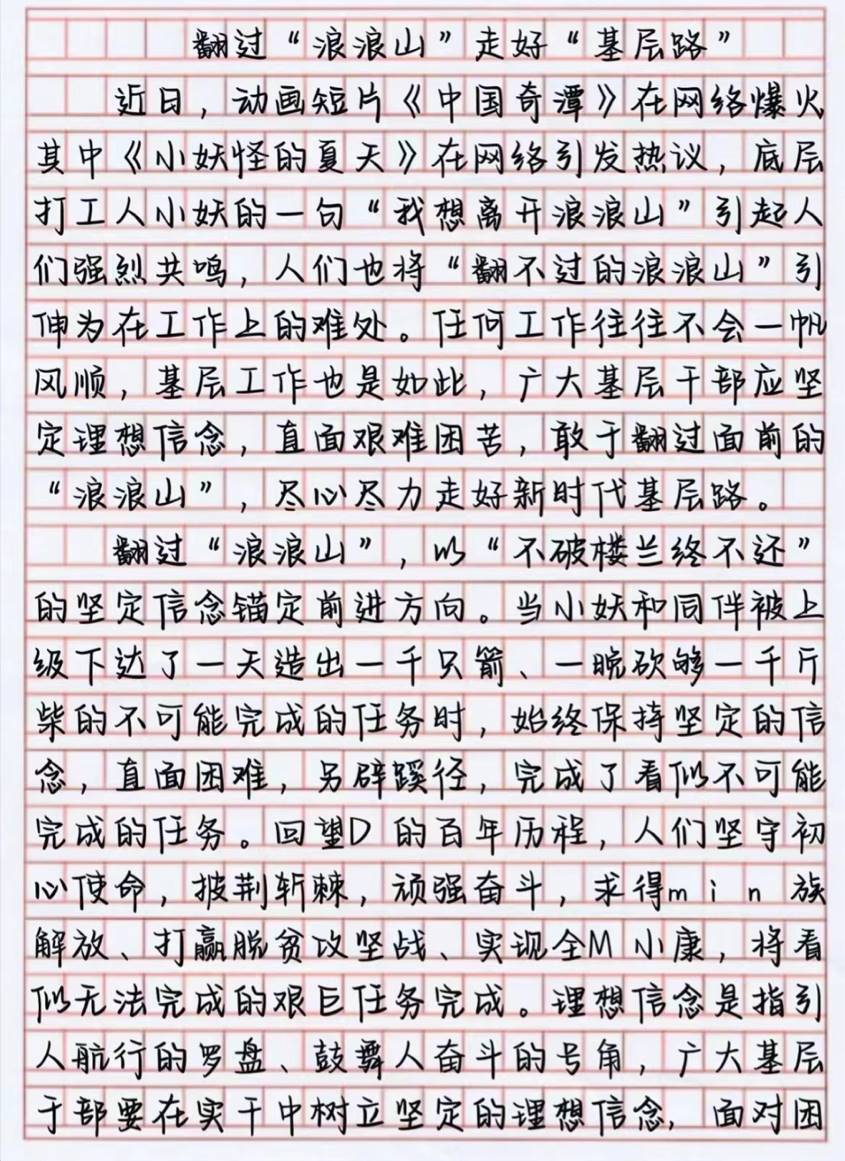 翻过“浪浪山”走好“基层路”
近日，动画短片《中国奇潭》在网络爆火
其中《小妖怪的夏天》在网络引发热议，底层
打工人小妖的一句“我想离开浪浪山”引起人
们强烈共鸣，人们也将“翻不过的浪浪山”引
伸为在工作上的难处。任何工作往往不会一帆
风顺，基层工作也是如此，广大基层干部应坚
定理想信念，直面艰难困苦，敢于翻过面前的
“浪浪山”，尽心尽力走好新时代基层路。
翻过“浪浪山”，以“不破楼兰终不还”
的坚定信念锚定前进方向。当小妖和同伴被上
级下达了一天造出一千只箭、一晚砍够一千斤
柴的不可能完成的任务时，始终保持坚定的信
念，直面困难，另辟蹊径，完成了看似不可能
完成的任务。回望D的百年历程，人们坚守初
心使命，披荆斩棘，顽强奋斗，求得min族
解放、打赢脱贫攻坚战、实现全M小康，将看
似无法完成的艰巨任务完成。理想信念是指引
人航行的罗盘、鼓舞人奋斗的号角，广大基层
干部要在实干中树立坚定的理想信念，面对困